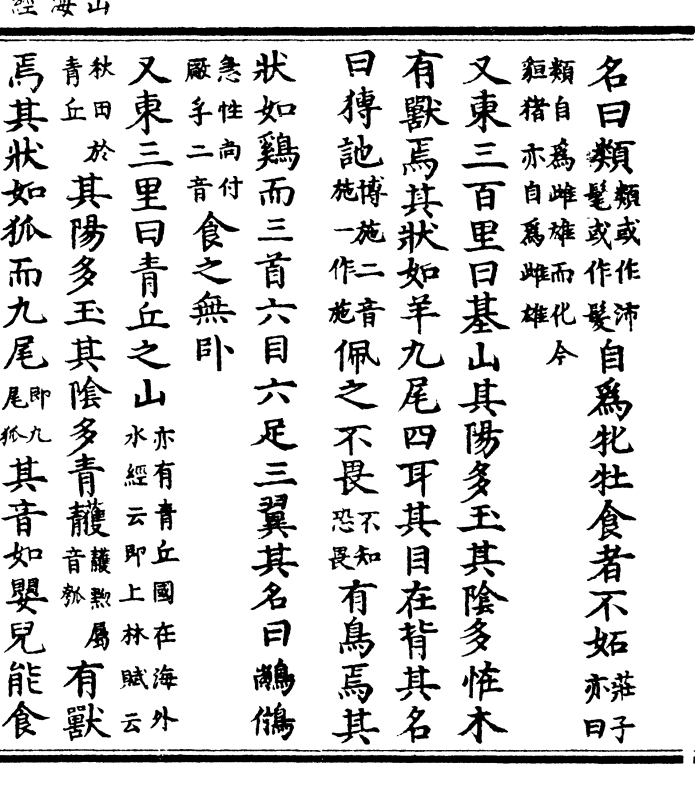 山海經
名曰類類或作沛髦或作髮自爲牝牡食者不妬莊子亦曰
類自爲雌雄而化今貆猪亦自爲雌雄
又東三百里曰基山其陽多玉其陰多恠木
有獸焉其狀如羊九尾四耳其目在背其名
曰猼訑博施二音施一作施佩之不畏不知恐畏有鳥焉其
狀如鷄而三首六目六足三翼其名曰鷩鵂
急性尚付厰孚二音食之無卧
又東三里曰青丘之山亦有青丘國在海外水經云即上林賦云
秋田於青丘其陽多玉其陰多青䨼䨼黝屬音瓠有獸
焉其狀如狐而九尾即九尾狐其音如嬰兒能食